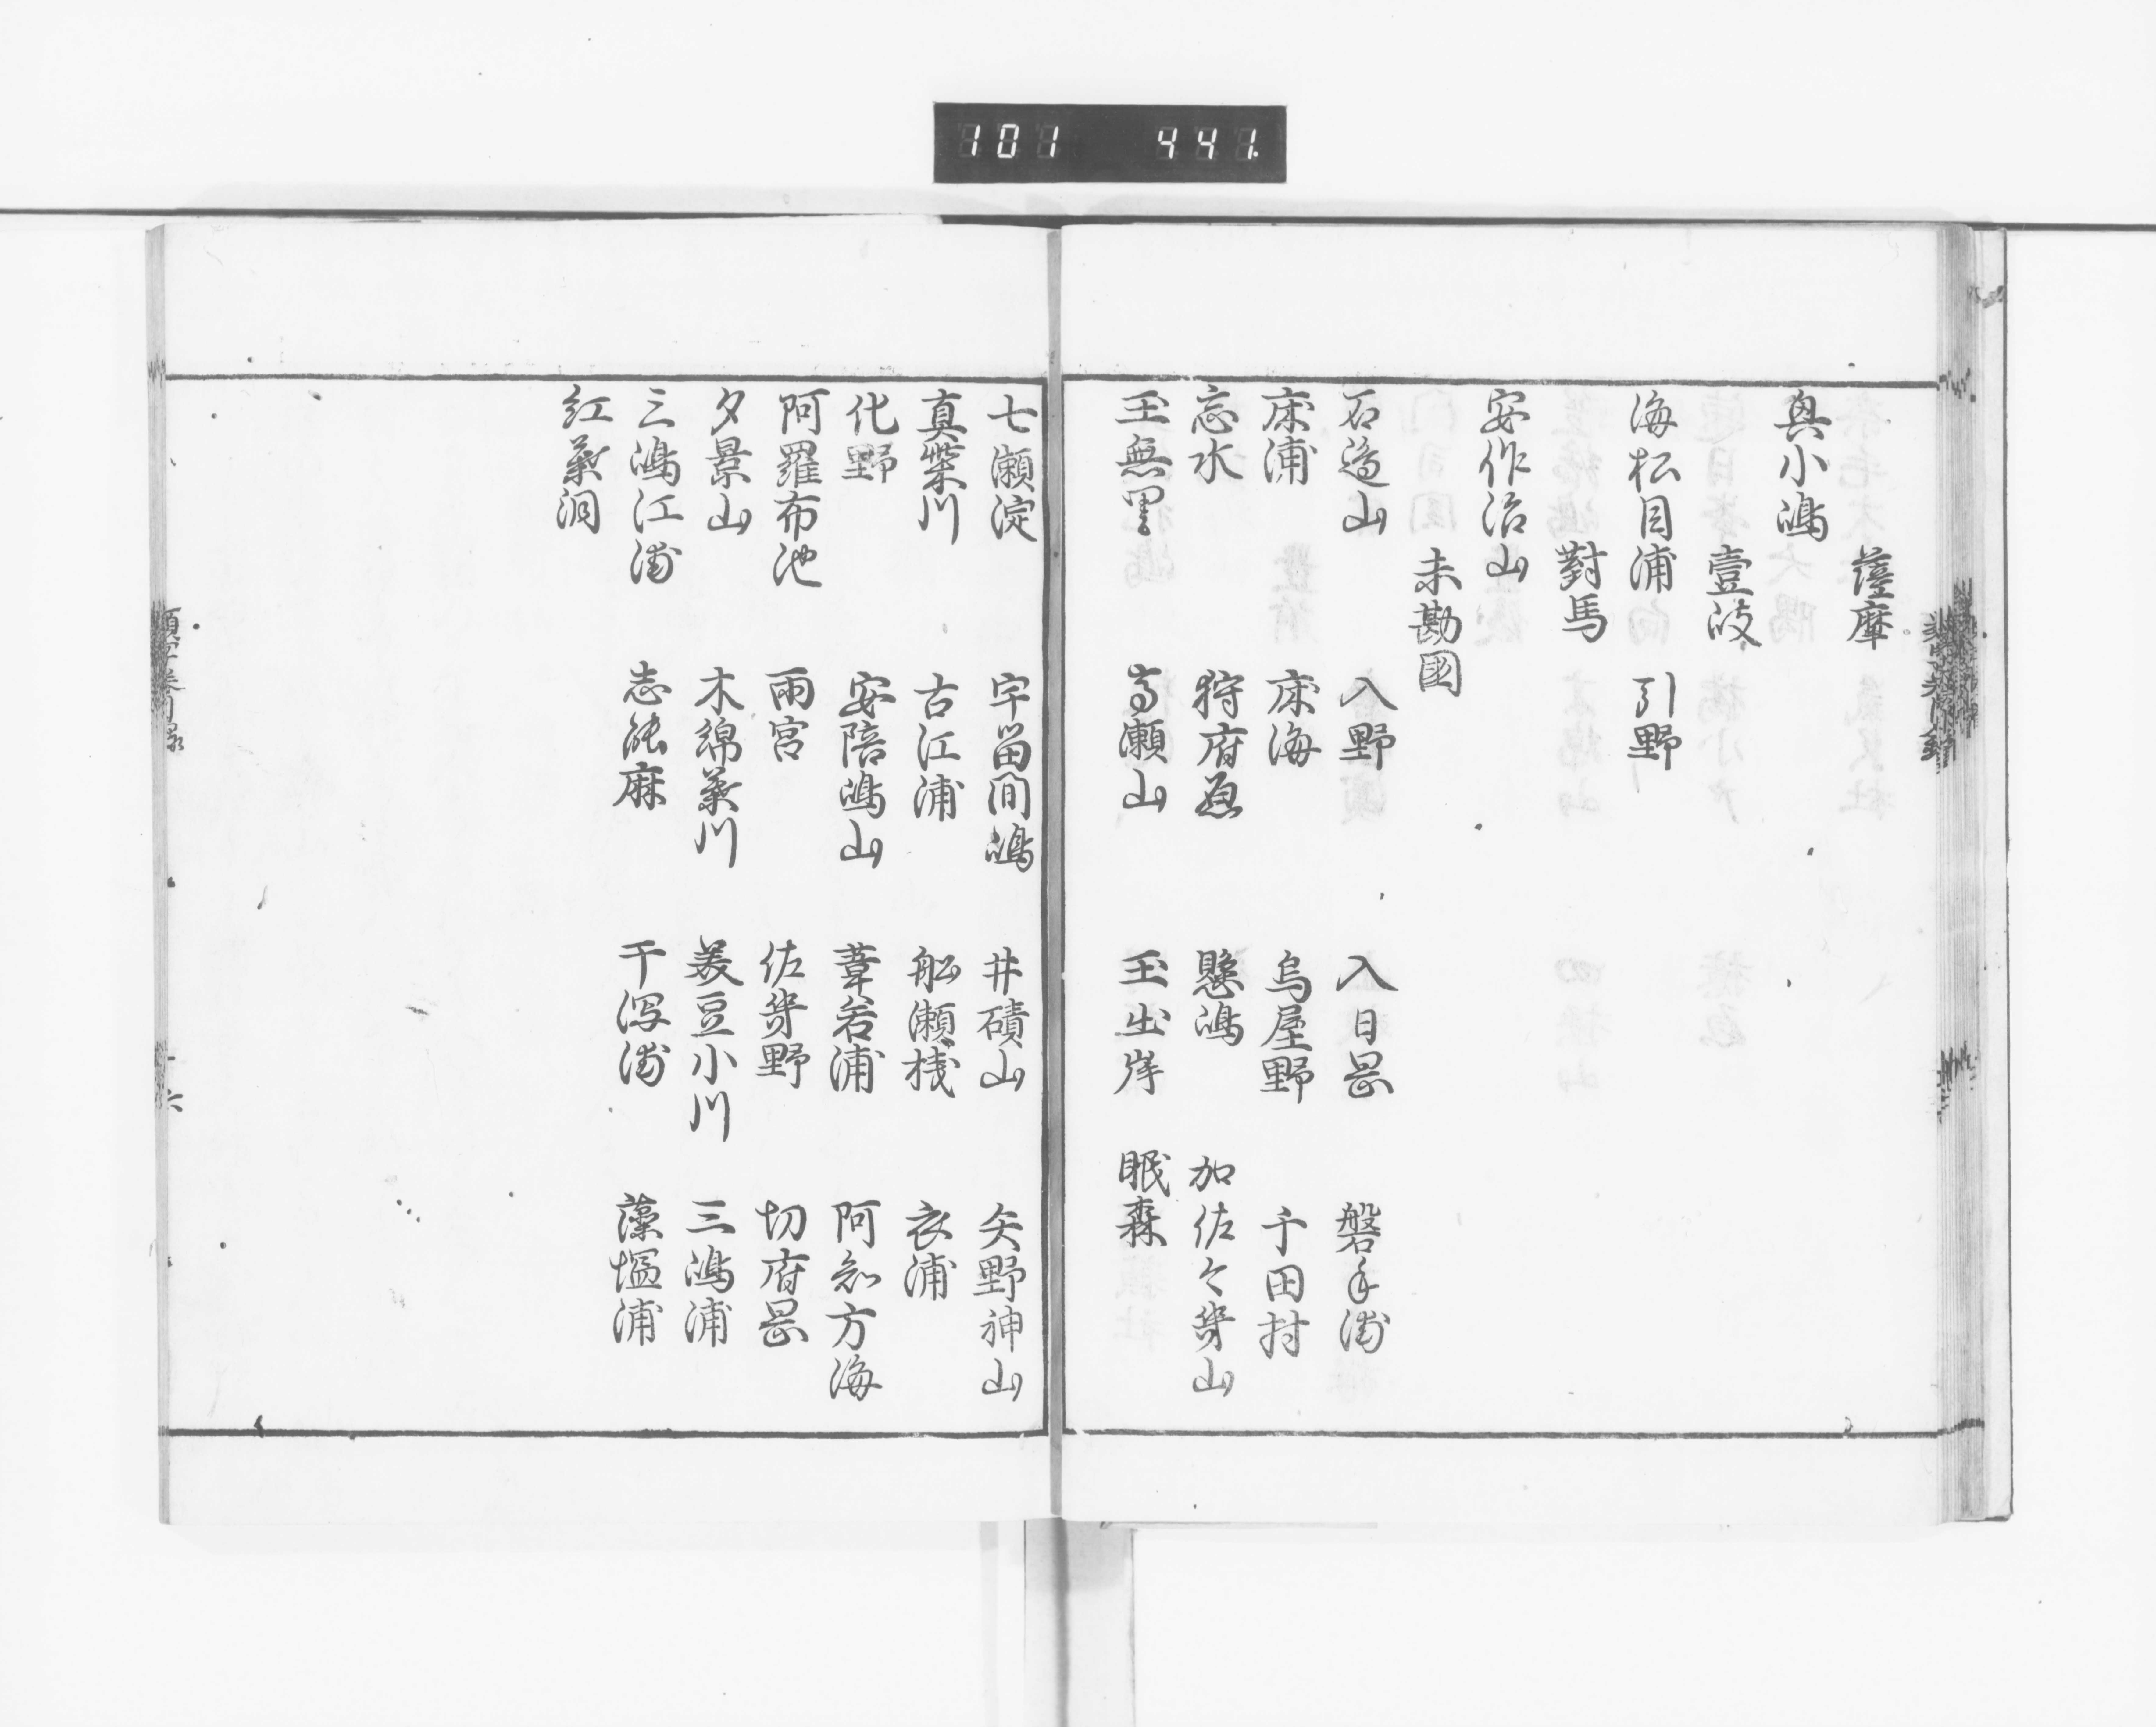 101 441
薩摩
奥小嶋
壹岐
海松目浦 引野
對馬
安作治山
未勘國
石邊山 入野 入日畏 磐手浦
床浦 床海 烏屋野 千田村
忘水 狩府忍 懸嶋 加佐々幾山
玉無里 高瀬山 玉出岸 眠森
七瀬淀 宇留間嶋 井磧山 矢野神山
真柴川 古江浦 舩瀬桟 衣浦
化野 安陪嶋山 葦若浦 阿知方海
阿羅布池 雨宮 佐幾野 切府畏
夕景山 木綿葉川 美豆小川 三嶋浦
三嶋江浦 志能麻 干泻浦 藻塩浦
紅葉洞
十六